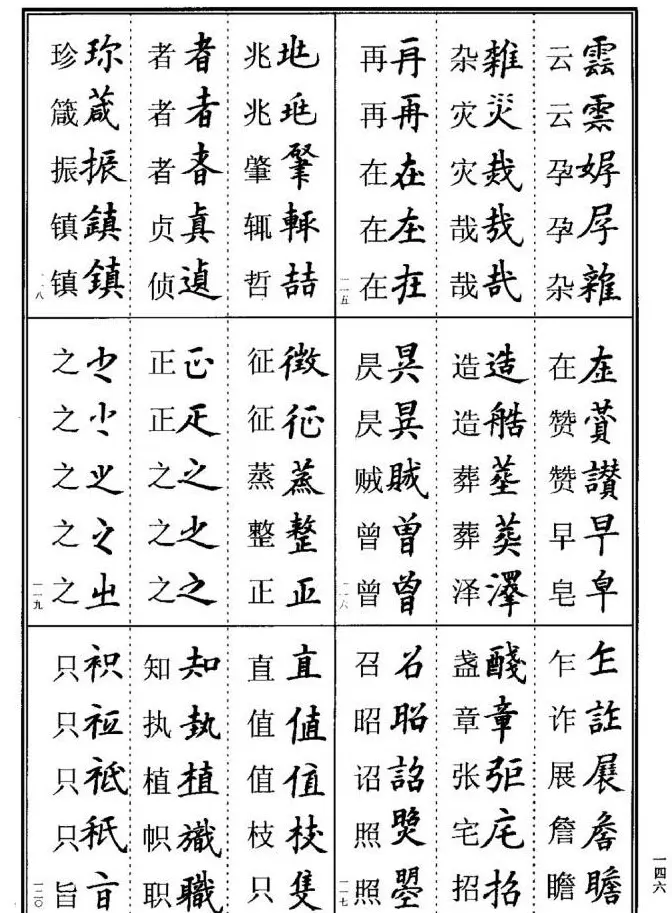 云雲
云雲
孕㛅
孕孕
杂雜
杂雜
灾災
灾烖
哉哉
哉哉
再再
再再
在在
在在
在在
一一五
在在
赞賛
赞讃
早早
皂皁
造造
造艁
葬塟
葬葬
泽澤
昃昃
昃昃
贼賊
曾曽
曾曾
一一六
乍乍
诈詐
展展
詹詹
瞻瞻
盏醆
章章
张張
宅宅
招招
召召
昭昭
诏詔
照照
照曌
一一七
兆兆
兆兆
肇肇
辄輙
哲喆
者者
者者
者者
贞真
侦遉
珍珎
箴葴
振振
镇鎮
镇鎮
一一八
征徴
征征
蒸蒸
整整
正正
正正
正疋
之之
之之
之之
之之
之之
之之
之之
之㞢
一一九
直直
值值
值值
枝枝
只隻
知知
执執
植植
帜旘
职職
只衹
只秖
只祗
只秪
旨旨
一二〇
一四六